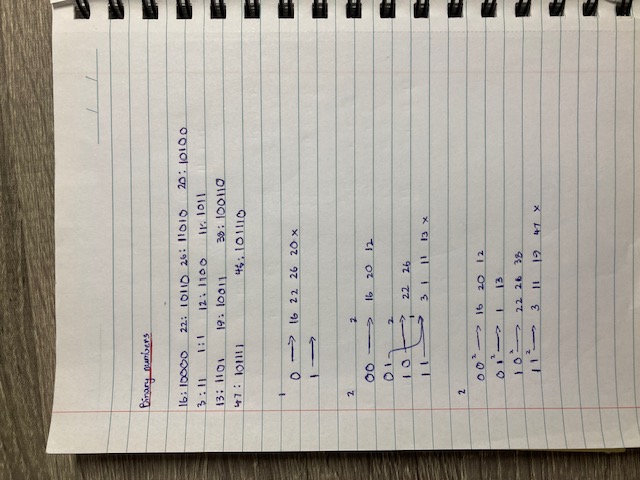 / /
Binary numbers
16: 10000 22: 10110 26: 11010 20: 10100
3: 11 1: 1 12: 1100 11: 1011
13: 1101 19: 10011 38: 100110
47: 101111 46: 101110
1
0 → 16 22 26 20 x
1 →
2 2
00 → 16 20 12
01 2
10 → 22 26
1
11 → 3 1 11 13 x
2
00² → 16 20 12
01² → 1 13
10² → 22 26 38
11² → 3 11 19 47 x